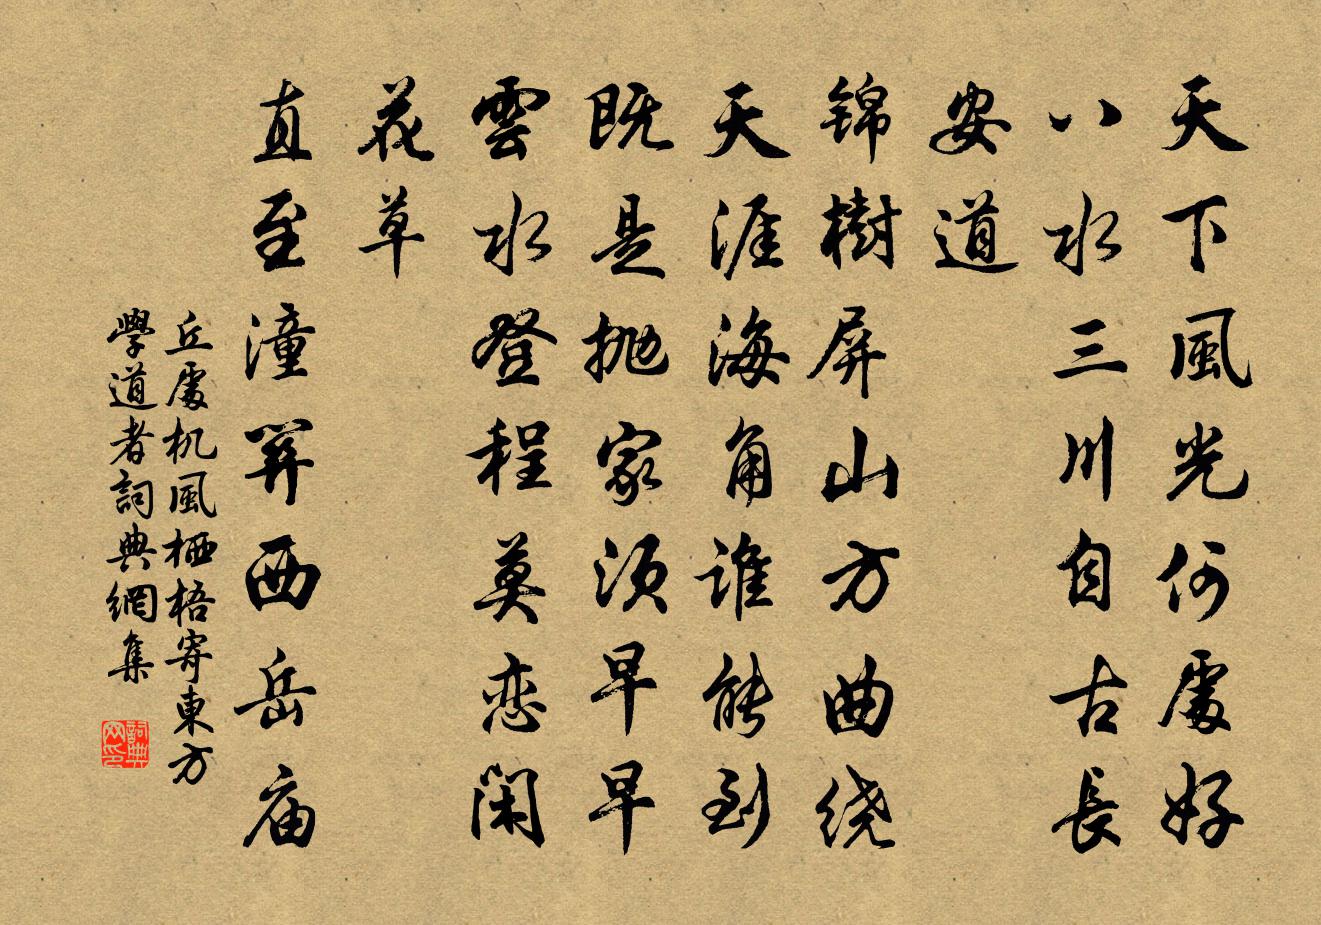 天下風光何處好
八水三川自古長
安道
锦樹屏山方曲绕
天涯海角谁能到
既是抛家须早早
雲水登程莫恋闲
花草
直至潼関西岳庙
丘處机風栖梧寄東方
學道者詞典網集
詞典网印